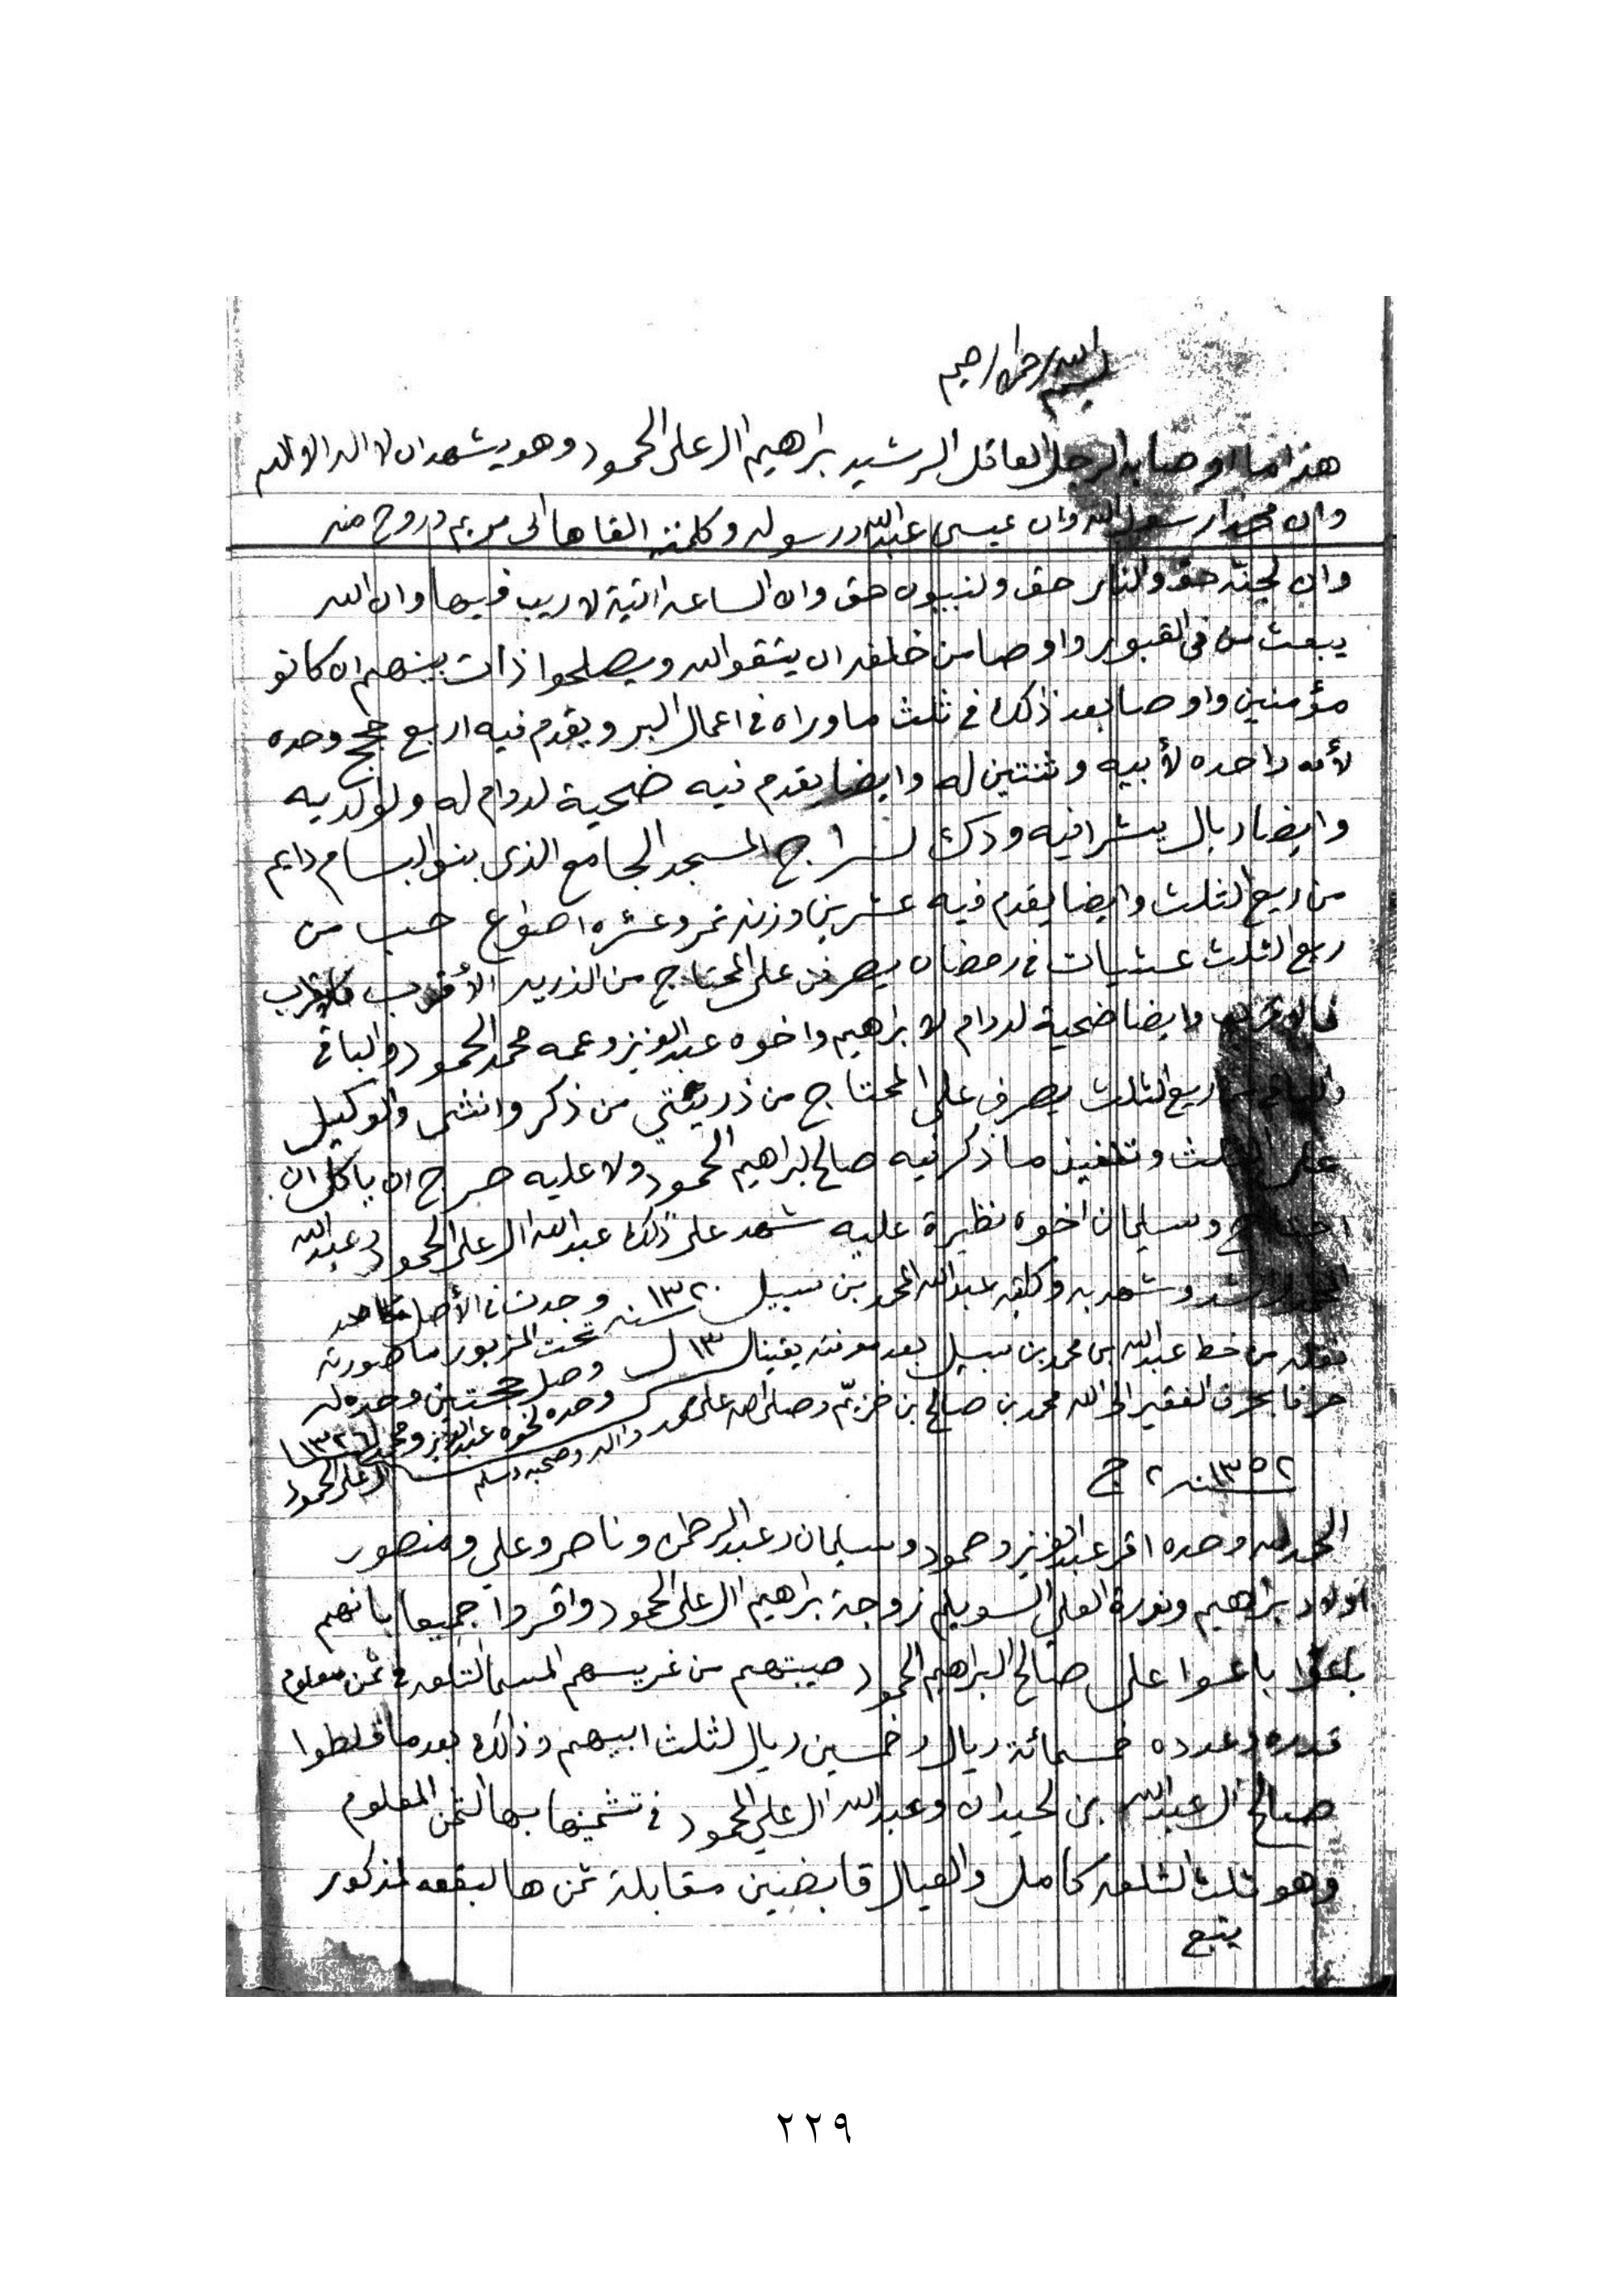 بسم الله الرحمن الرحيم
هذا ما اوصا به الرجل العاقل الرشيد براهيم ال علي الحمود وهو يشهد ان لا اله الا الله
وان محمدا رسول الله وان عيسى عبدالله ورسوله وكلمته القاها الى مريم وروح منه
وان لجنة حق والنار حق ولنبيون حق وان الساعه اتية لا ريب فيها وان الله
يبعث من في القبور واوصا من خلفه ان يتقوالله ويصلحوا ذات بينهم ان كانو
مؤمنين واوصا بعد ذلك في ثلث ما وراه في اعمال البر ويقدم فيه اربع حجج وحده
لأمه واحده لأبيه وثنتين له وايضا يقدم فيه ضحية لدوام له ولوالديه
وايضا ريال يشرا فيه ودك لسراج المسجد الجامع الذي بنو البسام دايم
من ريع الثلث وايضا يقدم فيه عشرين وزنه تمر وعشره اصواع حب من
ريع الثلث عشيات في رمضان يصرف على المحتاج من الذريه الأقرب فالاقرب
وايضا ضحية لدوام لا براهيم واخوه عبدالعزيز وعمه محمد الحمود والباقي
من ريع الثلث يصرف على المحتاج من ذريتي من ذكر وانثى والوكيل
على الثلث وتنفيذ ما ذكر فيه صالح البراهيم الحمود ولا عليه حرج ان ياكل ان
احتاج وسليمان اخوه نظيرة عليه شهد على ذلك عبدالله ال علي الحمود وعبدالله
وشهد به وكتبه عبدالله المحمد بن سبيل ١٣٢٠ سنه وجدت في الأصل
نقله من خط عبدالله بن محمد بن سبيل بعد معرفته يقينا تحت المزبور ما صورته
حرفا بحرف الفقير الى الله محمد بن صالح بن خزيّم وصلى الله على محمد واله وصحبه وسلم
وصل حجتين وحده له
وحده لخوه عبدالعزيز ومحمد ١٣٢٦
ال علي الحمود
١٣٥٢ سنه ٢ ج
الحمد لله وحده اقر عبدالعزيز وحمود وسليمان وعبدالرحمن وناصر وعلي ومنصور
اولاد براهيم ونورة العلي السويلم زوجة براهيم ال علي الحمود واقروا جميعا بانهم
باعوا على صالح البراهيم الحمود صيبتهم من غريسهم المسما التلعه في ثمن معلوم
قدره وعدده خمسمائة ريال وخمسين ريال لثلث ابيهم وذالك بعد ما قلطوا
صالح ال عبدالله بن لحيدان وعبدالله ال علي الحمود في تثمينها بها الثمن المعلوم
وهو ثلث التلعه كامل والعيال قابضين مقابلة ثمن ها لبقعه لمذكور
يتبع
٢٢٩